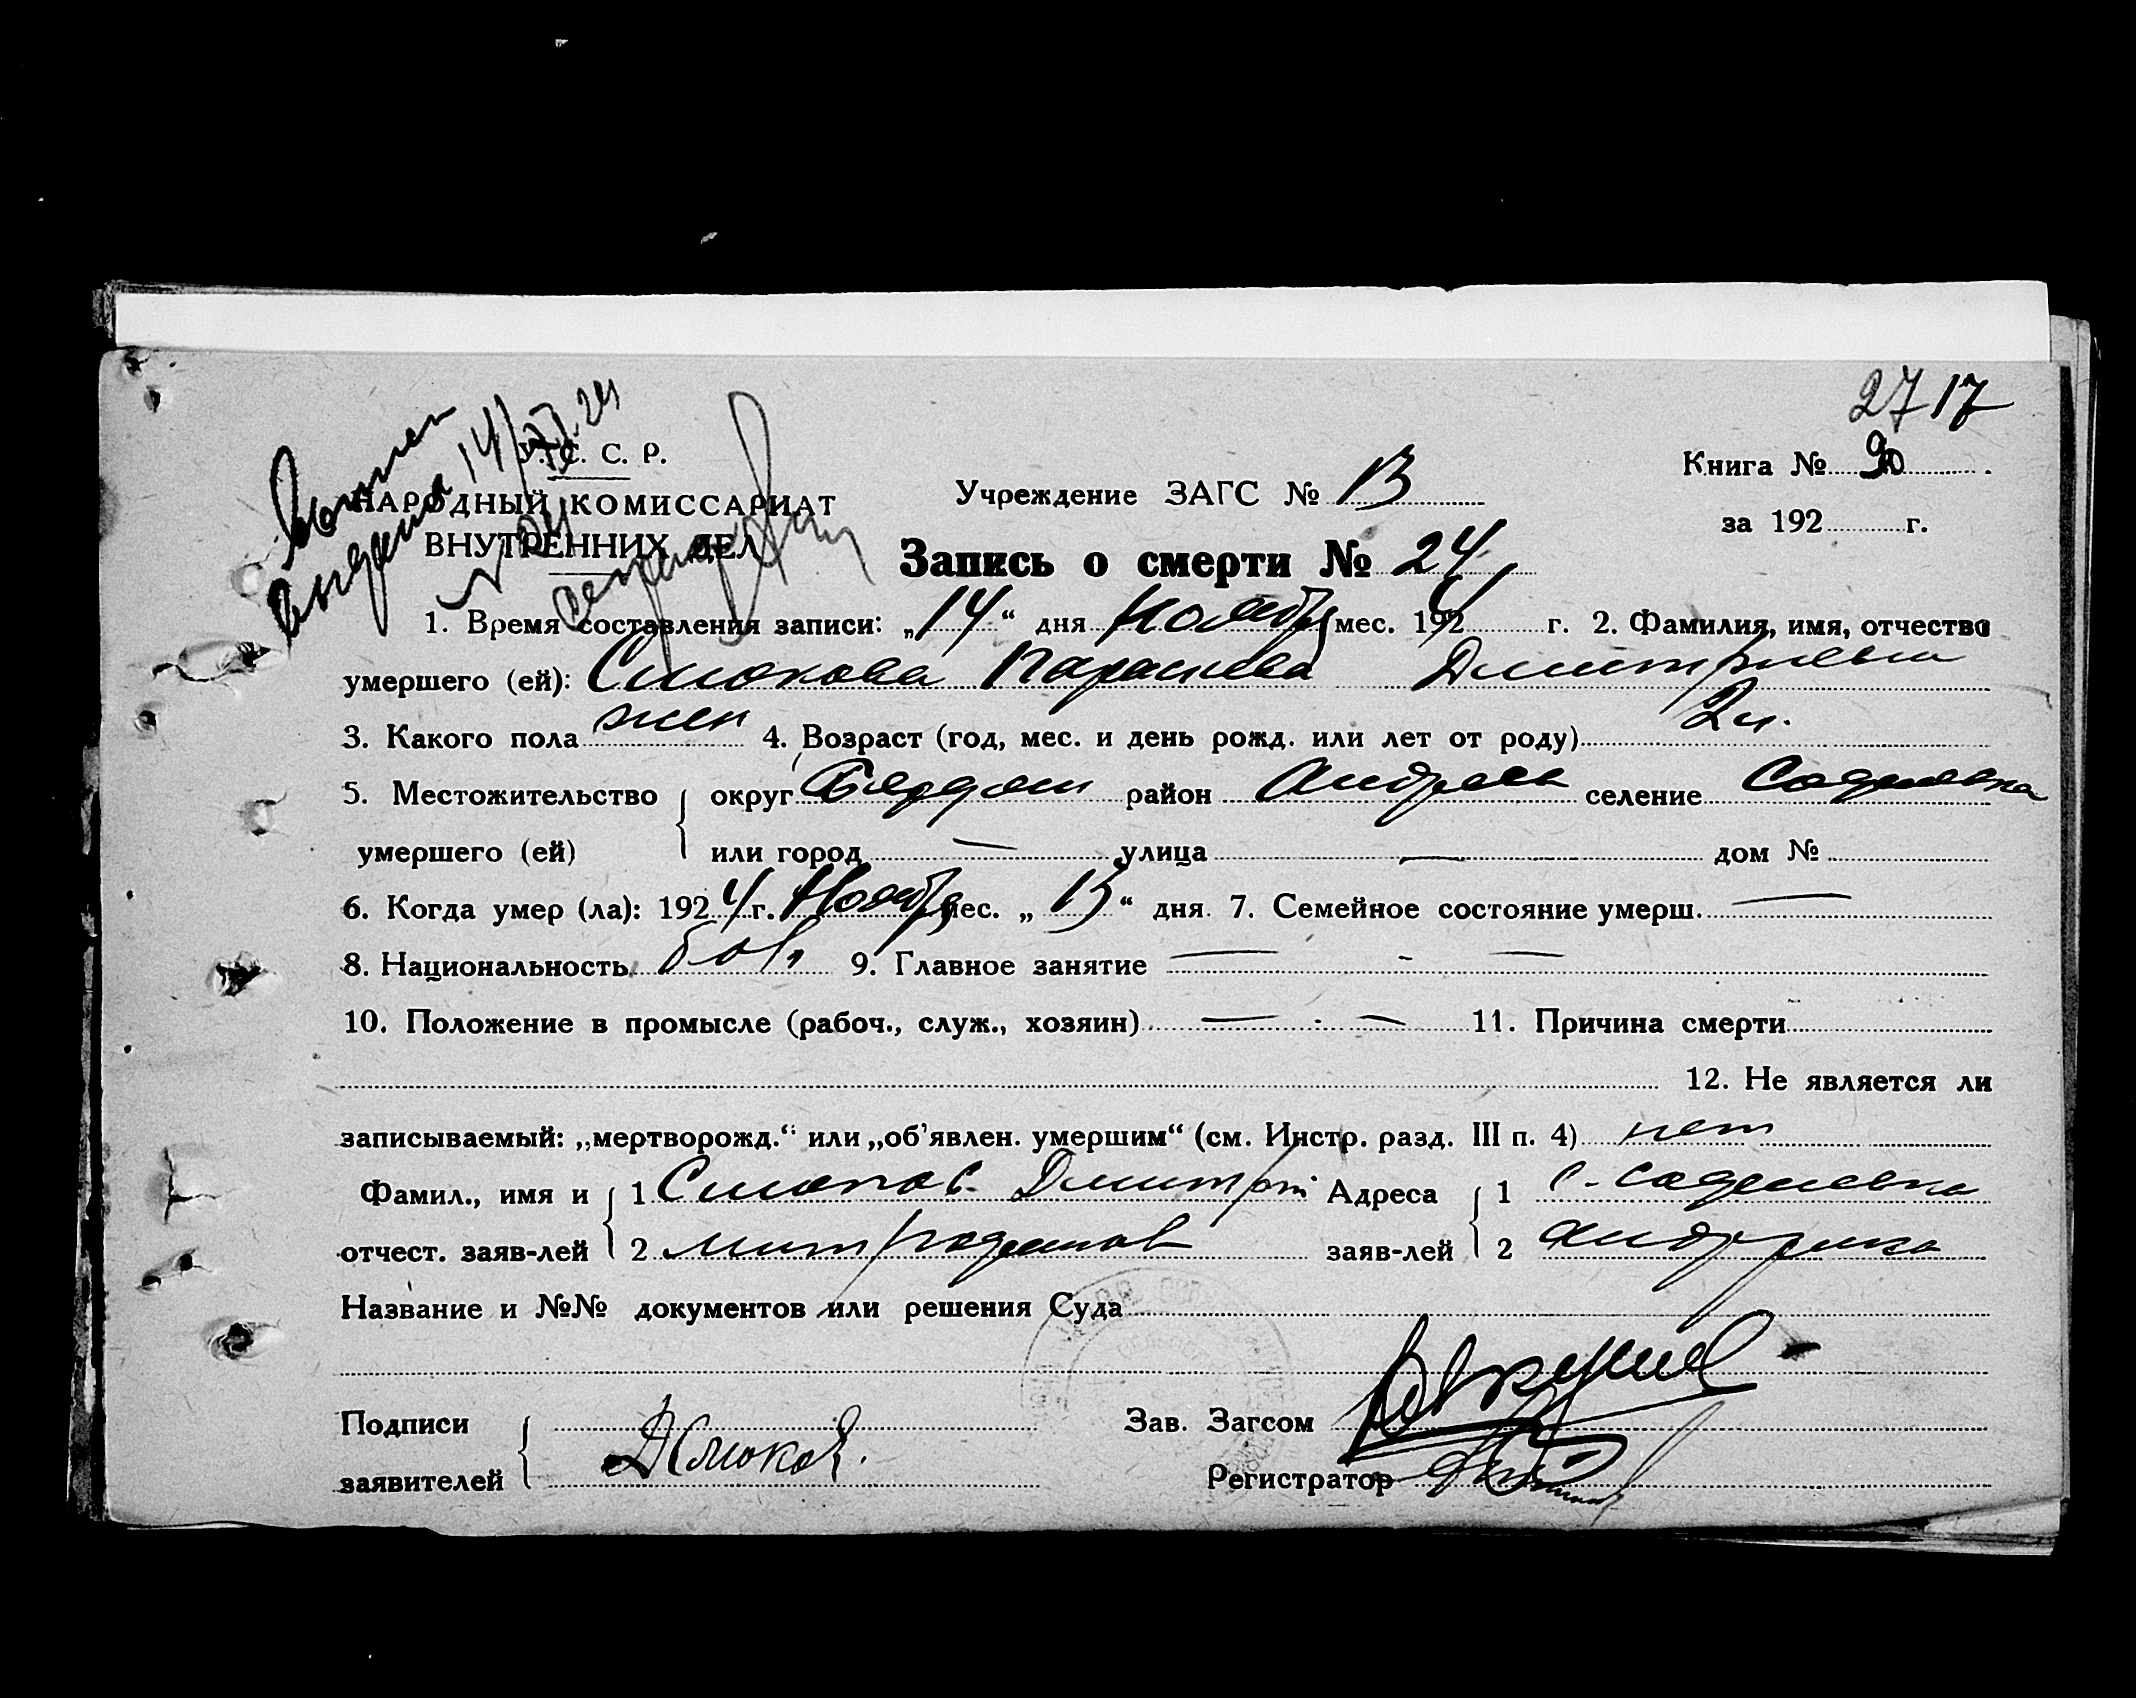 27 17
У. С. С. Р.
НАРОДНЫЙ КОМИССАРИАТ
ВНУТРЕННИХ ДЕЛ
выдана 14/XI 24
Учреждение ЗАГС № 13
Книга №
за 192 г.
Запись о смерти № 24
1. Время составления записи: „14“ дня Ноября мес. 1924 г. 2. Фамилия, имя, отчество
умершего (ей): Слюкова Параскева Дмитриевна
3. Какого пола жен 4. Возраст (год, мес. и день рожд. или лет от роду) 2
5. Местожительство округ Бердян район Андреев селение
умершего (ей) или город — улица — дом №
6. Когда умер (ла): 1924 г. Ноября мес. „13“ дня 7. Семейное состояние умерш. —
8. Национальность болг 9. Главное занятие — - —
10. Положение в промысле (рабоч., служ., хозяин) — - — 11. Причина смерти
12. Не является ли
записываемый: „мертворожд.“ или „об'явлен. умершим“ (см. Инстр. разд. III п. 4) нет
Фамил., имя и 1 Слюков Дмитрий Адреса 1 с.
отчест. заяв-лей 2 Митрофанов заяв-лей 2
Название и №№ документов или решения Суда
Подписи
заявителей ДСлюков.
Зав. Загсом
Регистратор